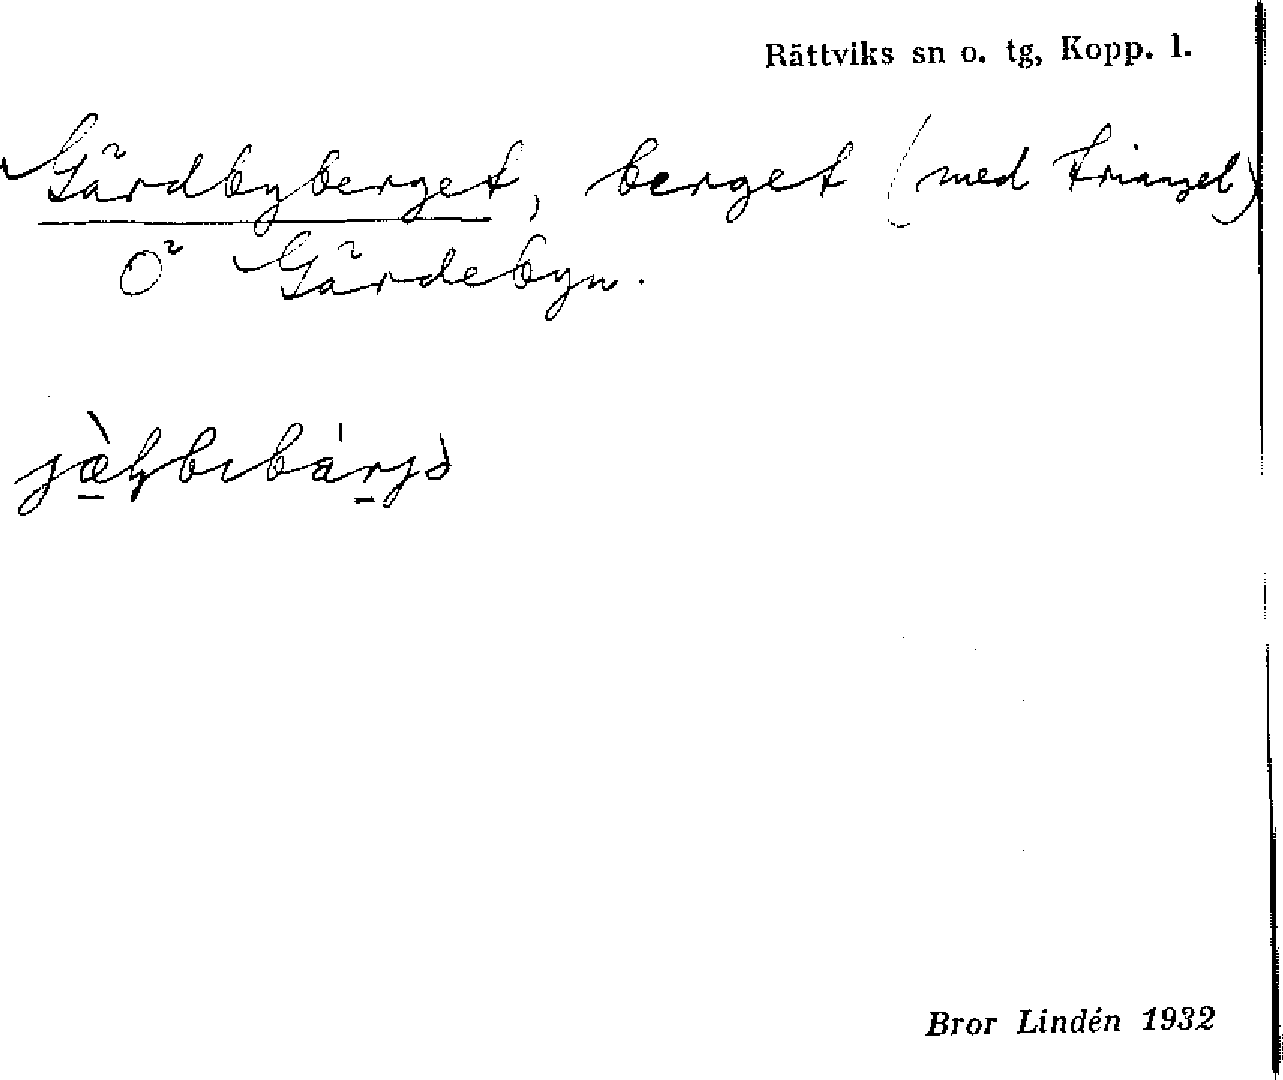 Rättviks sn o. tg, Kopp. l.
Gärdbyberget, berget (med triangel)
Ö Gärdebyn.
Bror Lindén 1932